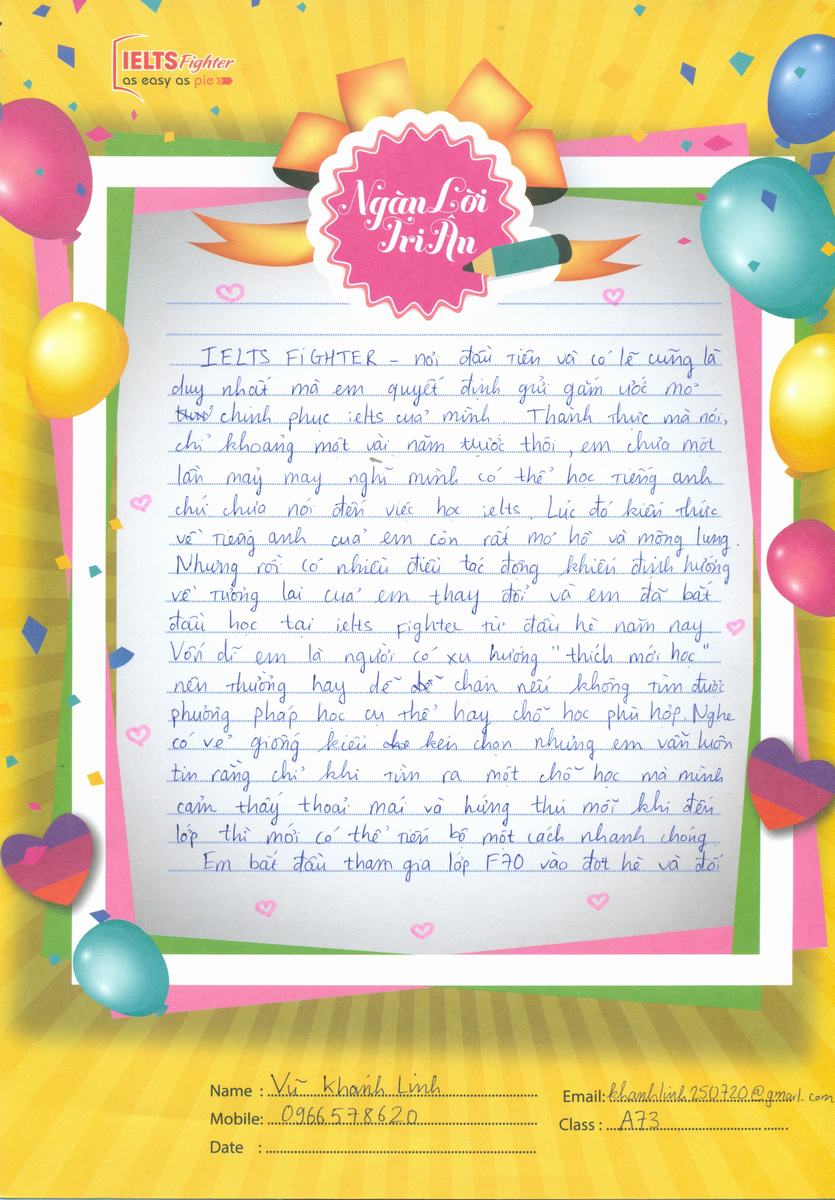 IELTS Fighter
as easy as pie
Ngàn Lời
Tri Ân
IELTS FiGHTER - nơi đầu tiên và có lẽ cũng là
duy nhất mà em quyết định gửi gắm ước mơ
chinh phục ielts của mình. Thành thực mà nói,
chỉ khoảng một vài năm trước thôi, em chưa một
lần mảy may nghĩ mình có thể học tiếng anh
chứ chưa nói đến việc học ielts. Lúc đó kiến thức
về tiếng anh của em còn rất mơ hồ và mông lung.
Nhưng rồi có nhiều điều tác động khiến định hướng
về tương lai của em thay đổi và em đã bắt
đầu học tại ielts fighter từ đầu hè năm nay
Vốn dĩ em là người có xu hướng "thích mới học"
nên thường hay dễ chán nếu không tìm được
phương pháp học cụ thể hay chỗ học phù hợp. Nghe
có vẻ giống kiểu kén chọn nhưng em vẫn luôn
tin rằng chỉ khi tìm ra một chỗ học mà mình
cảm thấy thoải mái và hứng thú mỗi khi đến
lớp thì mới có thể tiến bộ một cách nhanh chóng.
Em bắt đầu tham gia lớp F70 vào đợt hè và đối
Name : Vũ Khánh Linh
Email: khanhlinh250720@gmail.com
Mobile: 0966578620
Class : A73
Date :